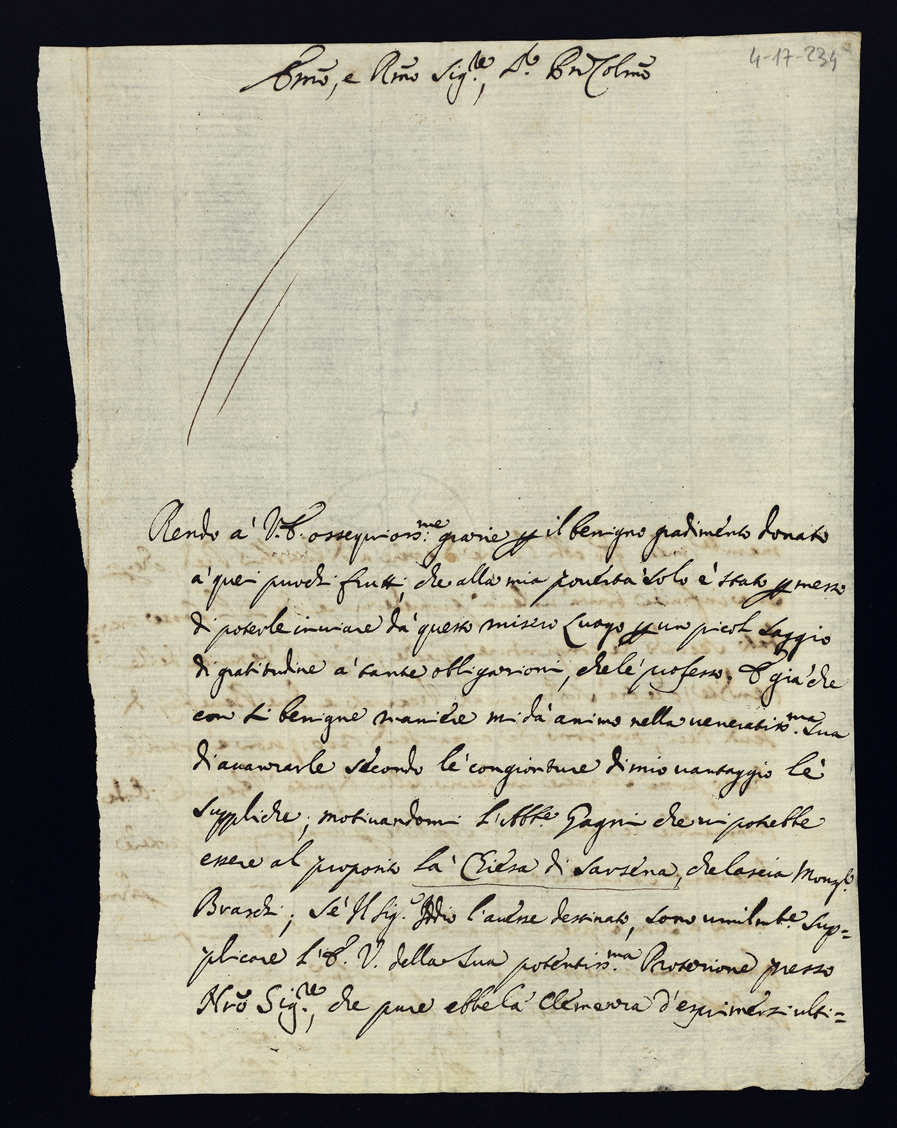 4-17-234
Emo, e Rmo Sig.re, P.ne Colmo
Rendo à V. E. ossequiosis.me grazie p il benigno gradimento donato
à quei puochi frutti, che alla mia povertà solo è stato pmesso
di poterle inviare dà questo misero Luogo p un picol saggio
di gratitudine à tante obligazioni, che lé professo. E già che
con si benigne maniére mi dà animo nella veneratis.ma Sua
di avanzarle sécondo lé congionture di mio vantaggio lé
suppliche; motivandomi l'Abbte. Gagni che vi potrebbe
essere al proposito là Chiésa di Sarséna, che lascia Monsg.r
Braschi; Sé Il Sig.e Iddio l'avésse destinato, sono umilmte. sup=
plicare l'E. V. della Sua potentis.ma Protezione presso
Nrô Sig.re, che pure ebbe là Clémenza d'esprimérsi ulti=